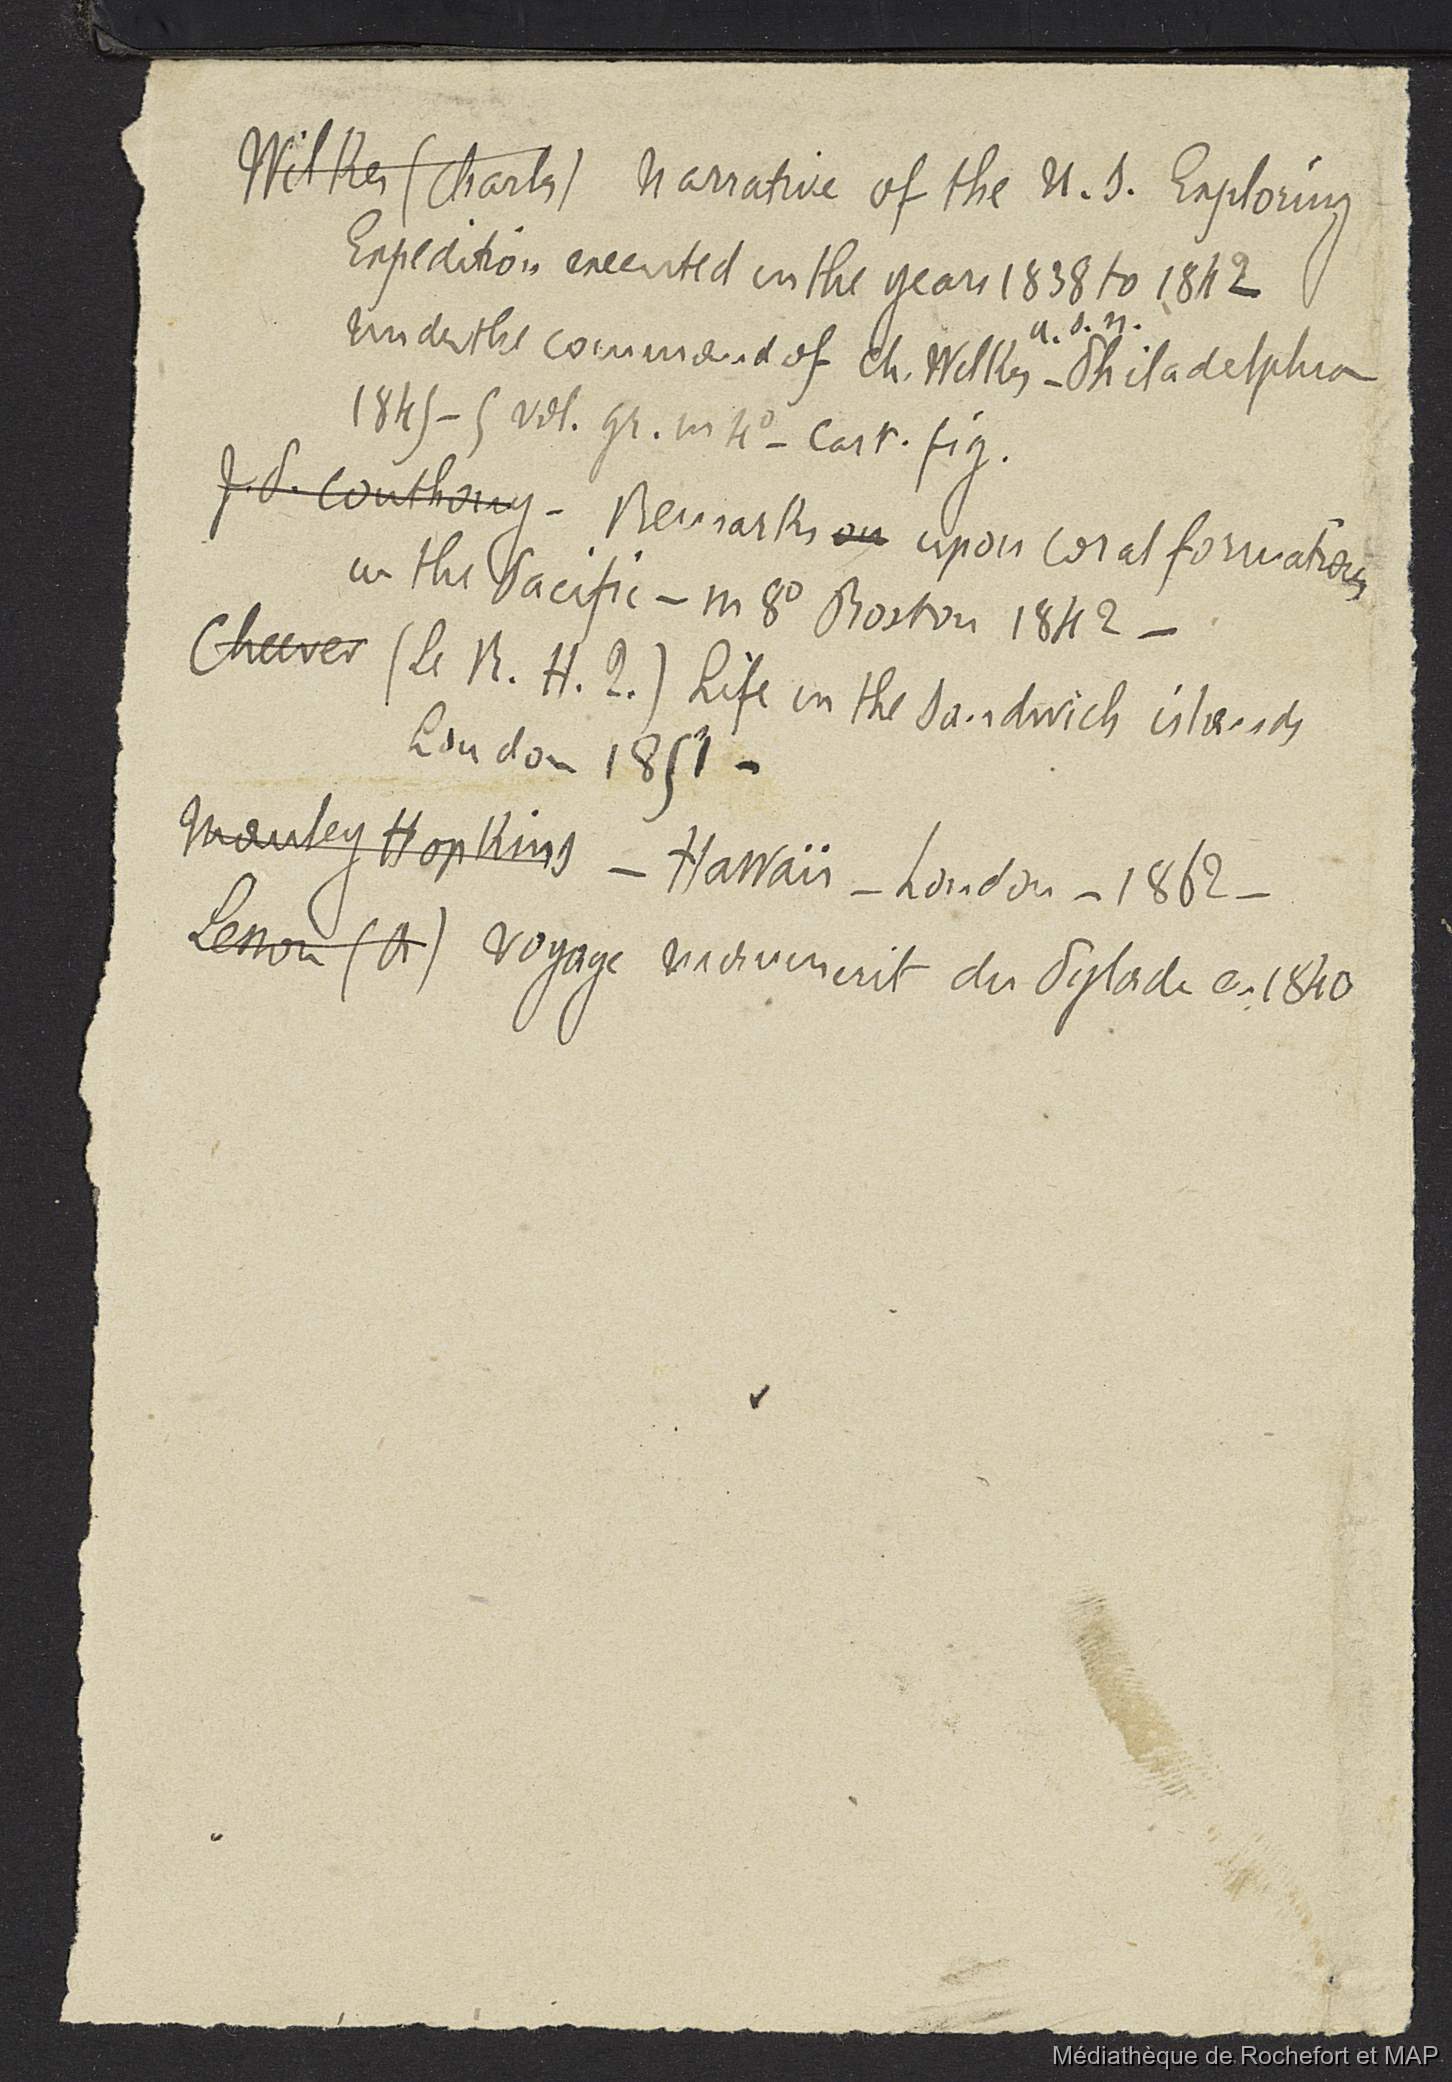 Wilkes (Charles) Narrative of the U. S. Exploring
Expedition executed in the years 1838 to 1842
under the command of Ch. Wilkes u. s. n. – Philadelphia
1845 – 5 vol. gr. in 4° – cart. fig.
J. P. Couthouy – Remarks on upon coral formations
in the Pacific – in 8° Boston 1842 –
Cheever (Le R. H. T.) Life in the Sandwich islands
London 1851 –
Manley Hopkins – Hawaii – London – 1862 –
Lesson (A) voyage manuscrit du Pylade en 1840
Médiathèque de Rochefort et MAP